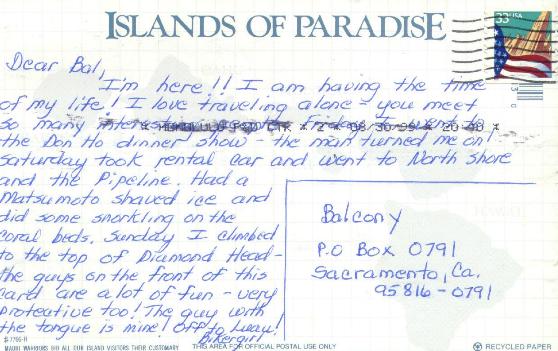 ISLANDS OF PARADISE
33 USA
Dear Bal,
I'm here!! I am having the time
of my life! I love traveling alone - you meet
so many interesting people. Friday I went to
* HONOLULU P&DCTR * 2 * 08/30/99 * 20:40 *
the Don Ho dinner show - the man turned me on!
Saturday took rental car and went to North Shore
and the Pipeline. Had a
Matsumoto shaved ice and
did some snorkling on the
coral beds. Sunday I climbed
to the top of Diamond Head -
the guys on the front of this
card are a lot of fun - very
protective too! The guy with
the tongue is mine! Off to Luau!
Bikergirl
Balcony
P.O Box 0791
Sacramento, Ca.
95816-0791
MAUI WARRIORS BID ALL OUR ISLAND VISITORS THEIR CUSTOMARY
THIS AREA FOR OFFICIAL POSTAL USE ONLY
RECYCLED PAPER